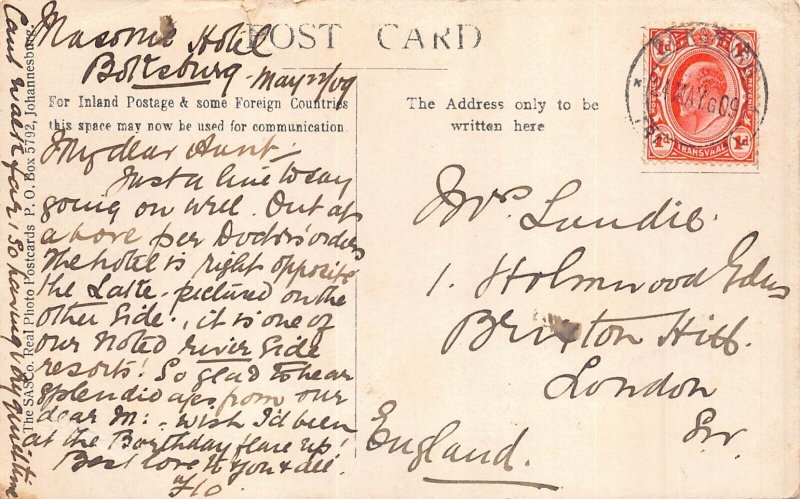 POST CARD
Masonic Hotel
Boksburg May 22/09
For Inland Postage & some Foreign Countries
this space may now be used for communication
The Address only to be
written here
My dear Aunt,
Just a line to say
going on well. Out at
above per Doctor's orders
The hotel is right opposite
the Lake - pictured on the
other side., it is one of
our noted river side
resorts! So glad to hear
splendid a/cs from our
dear M: - wish I'd been
at the Birthday flare up!
Best love to you & all.
Flo
Mrs. Lundie.
1. Holmwood Gdns
Brixton Hill.
London
SW.
England.
The SASCo. Real Photo Postcards P. O. Box 5792, Johannesburg.
Cant walk far, so having a quiet time
24 MAY 09
POSTAGE
REVENUE
1d
1d
TRANSVAAL
1d